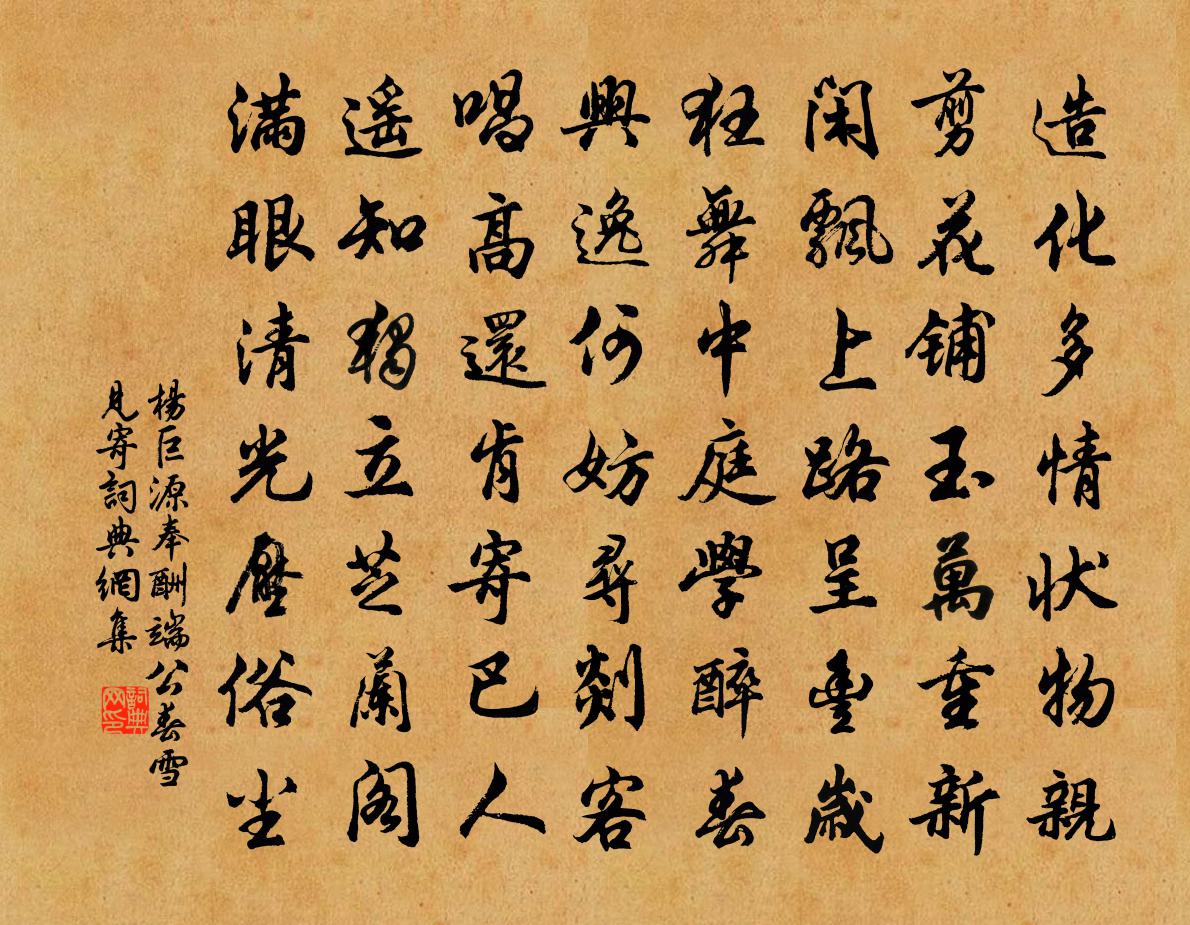 造化多情状物親
剪花铺玉萬重新
閑飄上路呈豊歲
狂舞中庭學醉春
興逸何妨尋剡客
唱高還肯寄巴人
遥知獨立芝蘭閣
满眼清光壓俗塵
楊巨源奉酬端公春雪
見寄詞典網集
詞典
网印